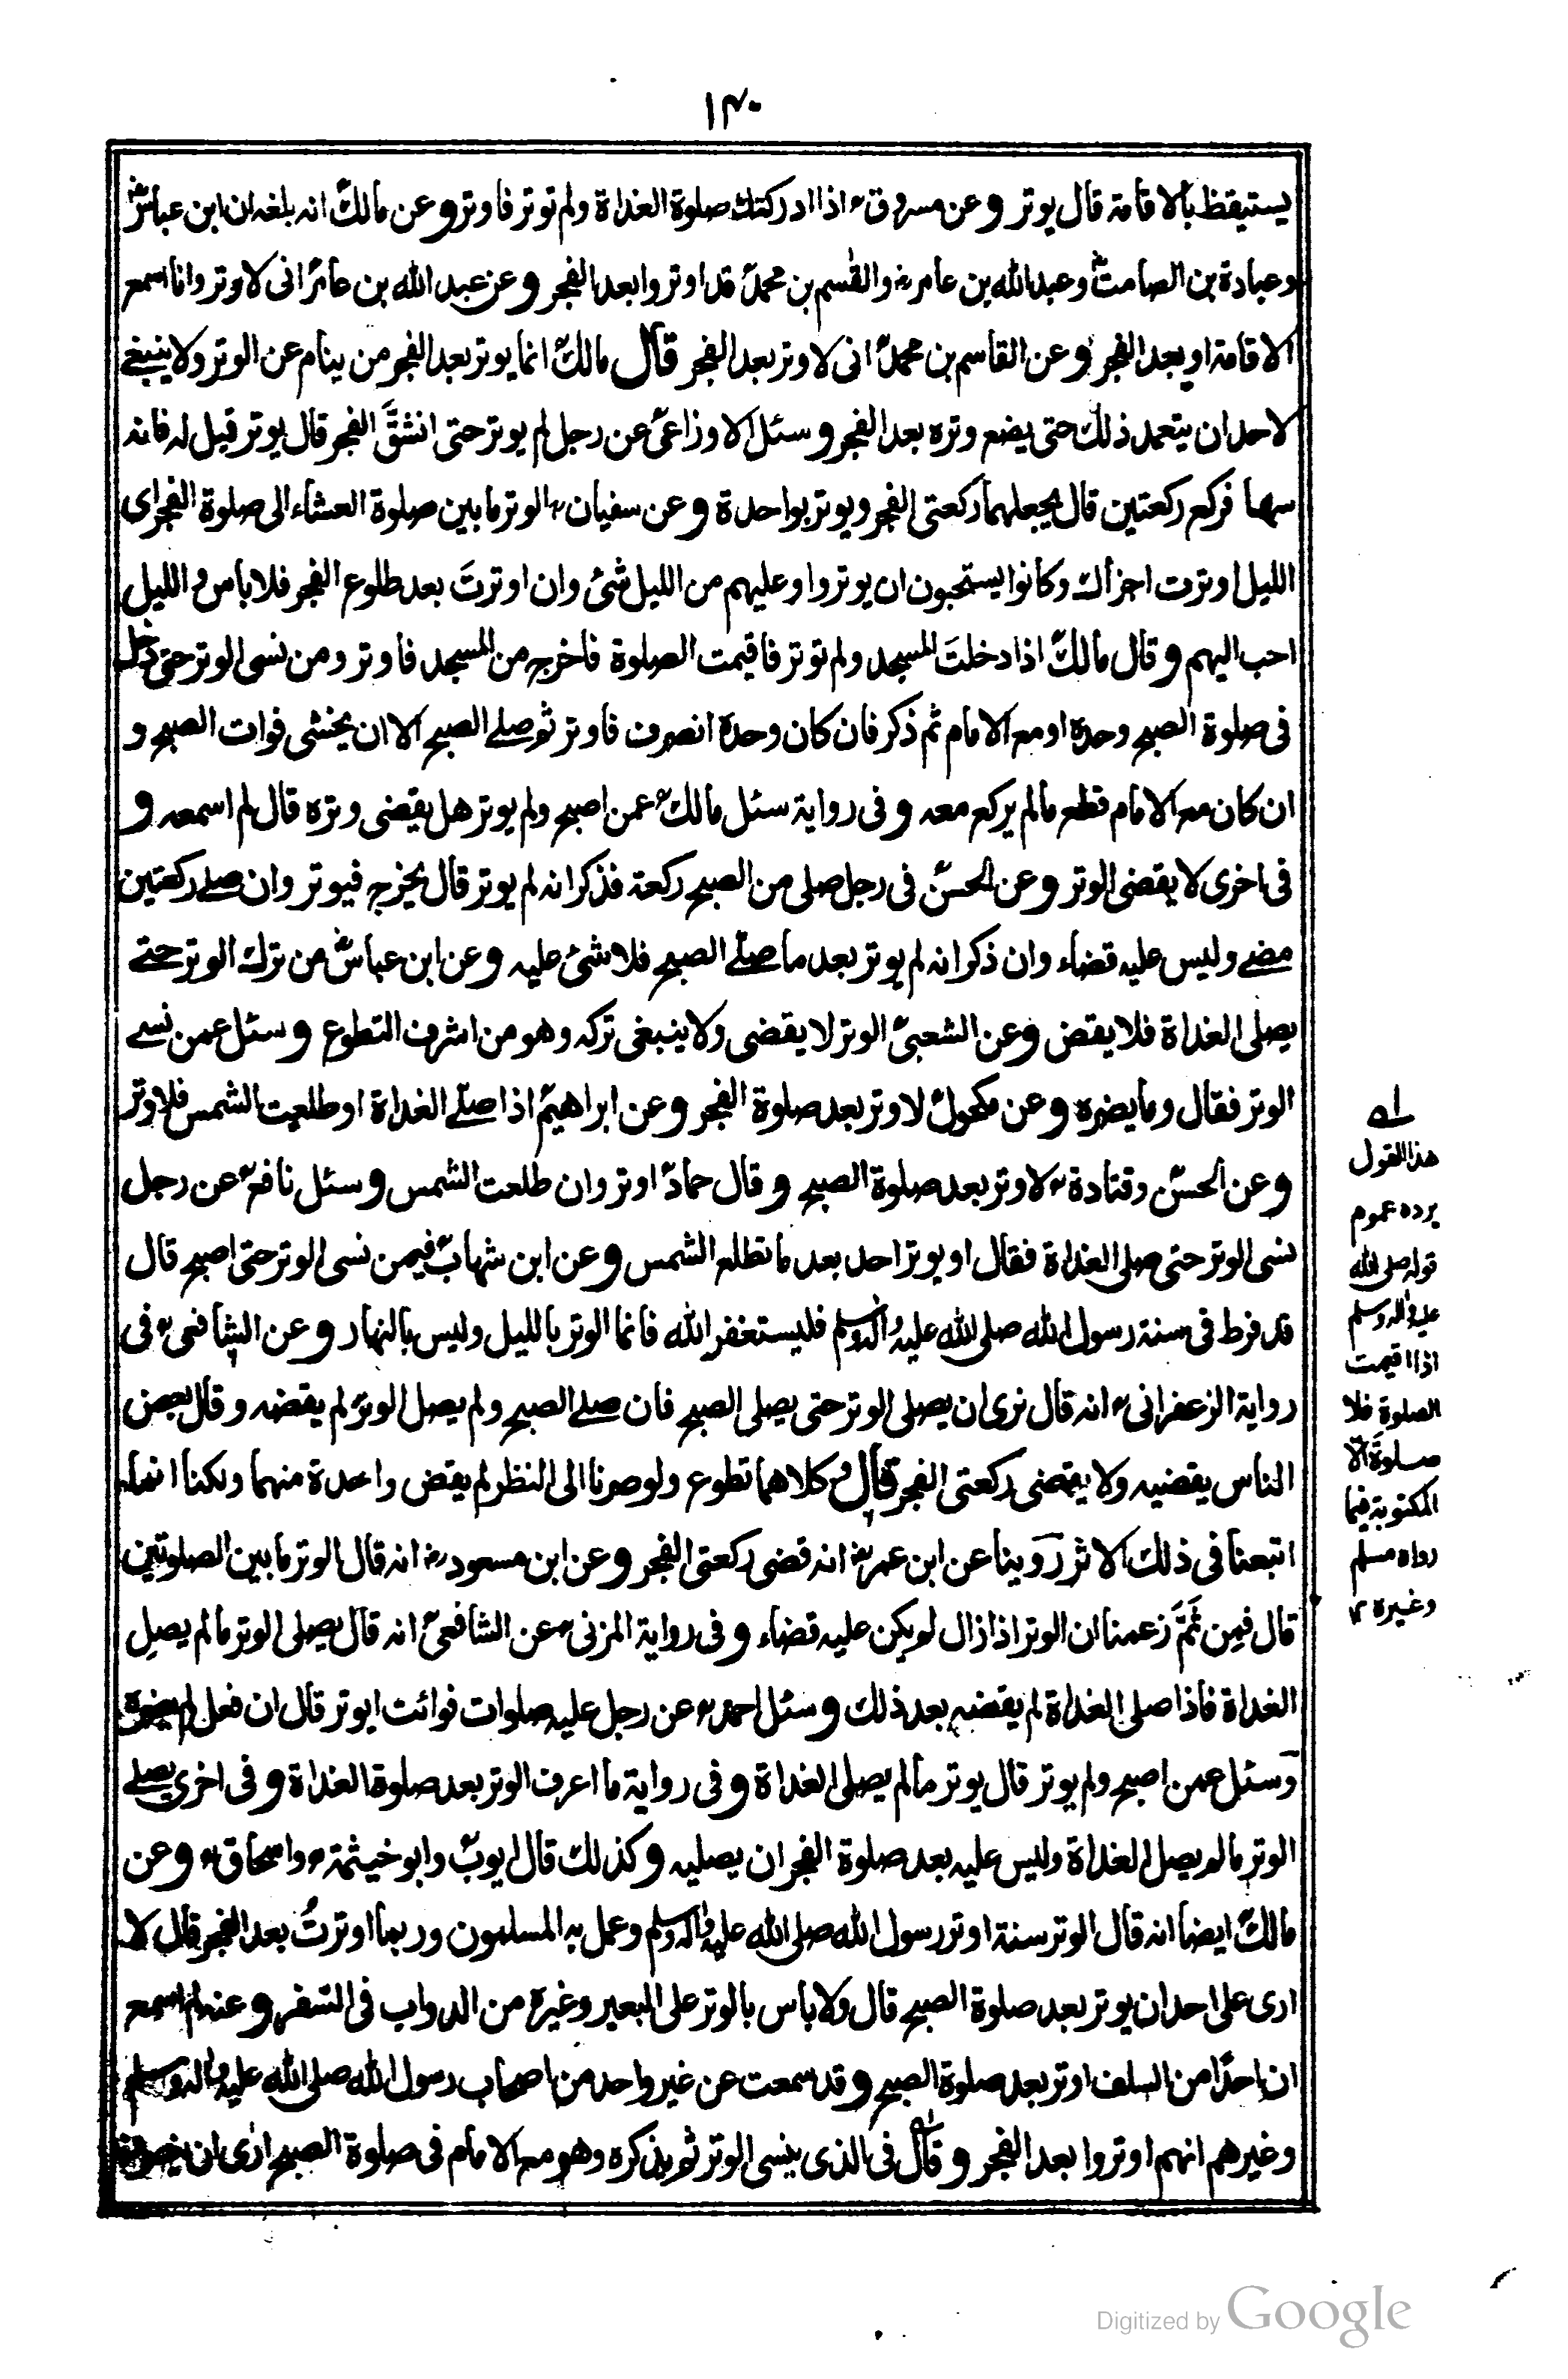 ۱۴۰
يستيقظ بالاقامة قال يوتر وعن مسروق اذا ادركتك صلوة الغداة ولم توتر فاوتر وعن مالك انه بلغه ان ابن عباس
وعبادة بن الصامت وعبد الله بن عامر والقسم بن محمد قد اوتروا بعد الفجر وعن عبد الله بن عامر انى لاوتر وانا اسمع
الاقامة او بعد الفجر وعن القاسم بن محمد انى لاوتر بعد الفجر قال مالك انما يوتر بعد الفجر من ينام عن الوتر ولا ينبغے
لاحد ان يتعمد ذلك حتى يضع وتره بعد الفجر وسئل الاوزاعى عن رجل لم يوتر حتى انشقَّ الفجر قال يوتر قيل له فانه
سها فركع ركعتين قال يجعلهما ركعتى الفجر ويوتر بواحدة وعن سفيان الوتر ما بين صلوة العشاء الى صلوة الفجر اى
الليل اوترت اجزاك وكانوا يستحبون ان يوتروا وعليهم من الليل شئ وان اوترتَ بعد طلوع الفجر فلا باس والليل
احب اليهم وقال مالك اذا دخلتَ المسجد ولم توتر فاقيمت الصلوة فاخرج من المسجد فاوتر ومن نسى الوتر حتى دخل
فى صلوة الصبح وحده او مع الامام ثم ذكر فان كان وحده انصرف فاوتر ثم صلے الصبح الا ان يخشى فوات الصبح و
ان كان مع الامام قطع مالم يركع معه وفى رواية سئل مالك عمن اصبح ولم يوتر هل يقضى وتره قال لم اسمعه و
فى اخرى لا يقضى الوتر وعن الحسن فى رجل صلى من الصبح ركعة فذكر انه لم يوتر قال يخرج فيوتر وان صلے ركعتين
مضے وليس عليه قضاء وان ذكر انه لم يوتر بعد ما صلے الصبح فلا شئ عليه وعن ابن عباس من ترك الوتر حتے
يصلى الغداة فلا يقض وعن الشعبى الوتر لا يقضى ولا ينبغى تركه وهو من اشرف التطوع وسئل عمن نسے
الوتر فقال وما يضره وعن مكحول لا وتر بعد صلوة الفجر وعن ابراهيم اذا صلے الغداة او طلعت الشمس فلا وتر
وعن الحسن وقتادة لا وتر بعد صلوة الصبح وقال حماد اوتر وان طلعت الشمس وسئل نافع عن رجل
نسى الوتر حتى صلى الغداة فقال او يوتر احد بعد ما تطلع الشمس وعن ابن شهاب فيمن نسى الوتر حتى اصبح قال
قد فرط فى سنة رسول الله صلى الله عليه واله وسلم فليستغفر الله فانما الوتر بالليل وليس بالنهار وعن الشافعى فى
رواية الزعفرانى انه قال نرى ان يصلى الوتر حتى يصلى الصبح فان صلے الصبح ولم يصل الوتر لم يقضه وقال بعض
الناس يقضيه ولا يقضى ركعتى الفجر قال و كلاهما تطوع ولو صرنا الى النظر لم يقض واحدة منهما ولكنا انما
اتبعنا فى ذلك الاثر رَوينا عن ابن عمر انه قضى ركعتى الفجر وعن ابن مسعود انه قال الوتر ما بين الصلوتين
قال فمِن ثَمَّ زعمنا ان الوتر اذا زال لم يكن عليه قضاء وفى رواية المزنى عن الشافعى انه قال يصلى الوتر مالم يصلِ
الغداة فاذا صلى الغداة لم يقضه بعد ذلك وسئل احمد عن رجل عليه صلوات فوائت ايوتر قال ان فعل لم يضره
وسئل عمن اصبح ولم يوتر قال يوتر مالم يصلى الغداة وفى رواية ما اعرف الوتر بعد صلوة الغداة وفى اخرى يصلے
الوتر مالم يصل الغداة وليس عليه بعد صلوة الفجر ان يصليه وكذلك قال ايوب وابو خيثمة واسحاق وعن
مالك ايضا انه قال الوتر سنة اوتر رسول الله صلى الله عليه واله وسلم وعمل به المسلمون وربما اوترتُ بعد الفجر قال لا
ارى على احد ان يوتر بعد صلوة الصبح قال ولا باس بالوتر على البعير وغيره من الدواب فى السفر وعنه لم اسمع
ان احدًا من السلف اوتر بعد صلوة الصبح وقد سمعت عن غير واحد من اصحاب رسول الله صلى الله عليه واله وسلم
وغيرهم انهم اوتروا بعد الفجر وقال فى الذى ينسى الوتر ثم يذكره وهو مع الامام فى صلوة الصبح ارى ان
له
هذا القول
يرده عموم
قوله صلى الله
عليه واله وسلم
اذا اقيمت
الصلوة فلا
صلوةَ الا
المكتوبة فيما
رواه مسلم
وغيره ۱۲
Digitized by Google